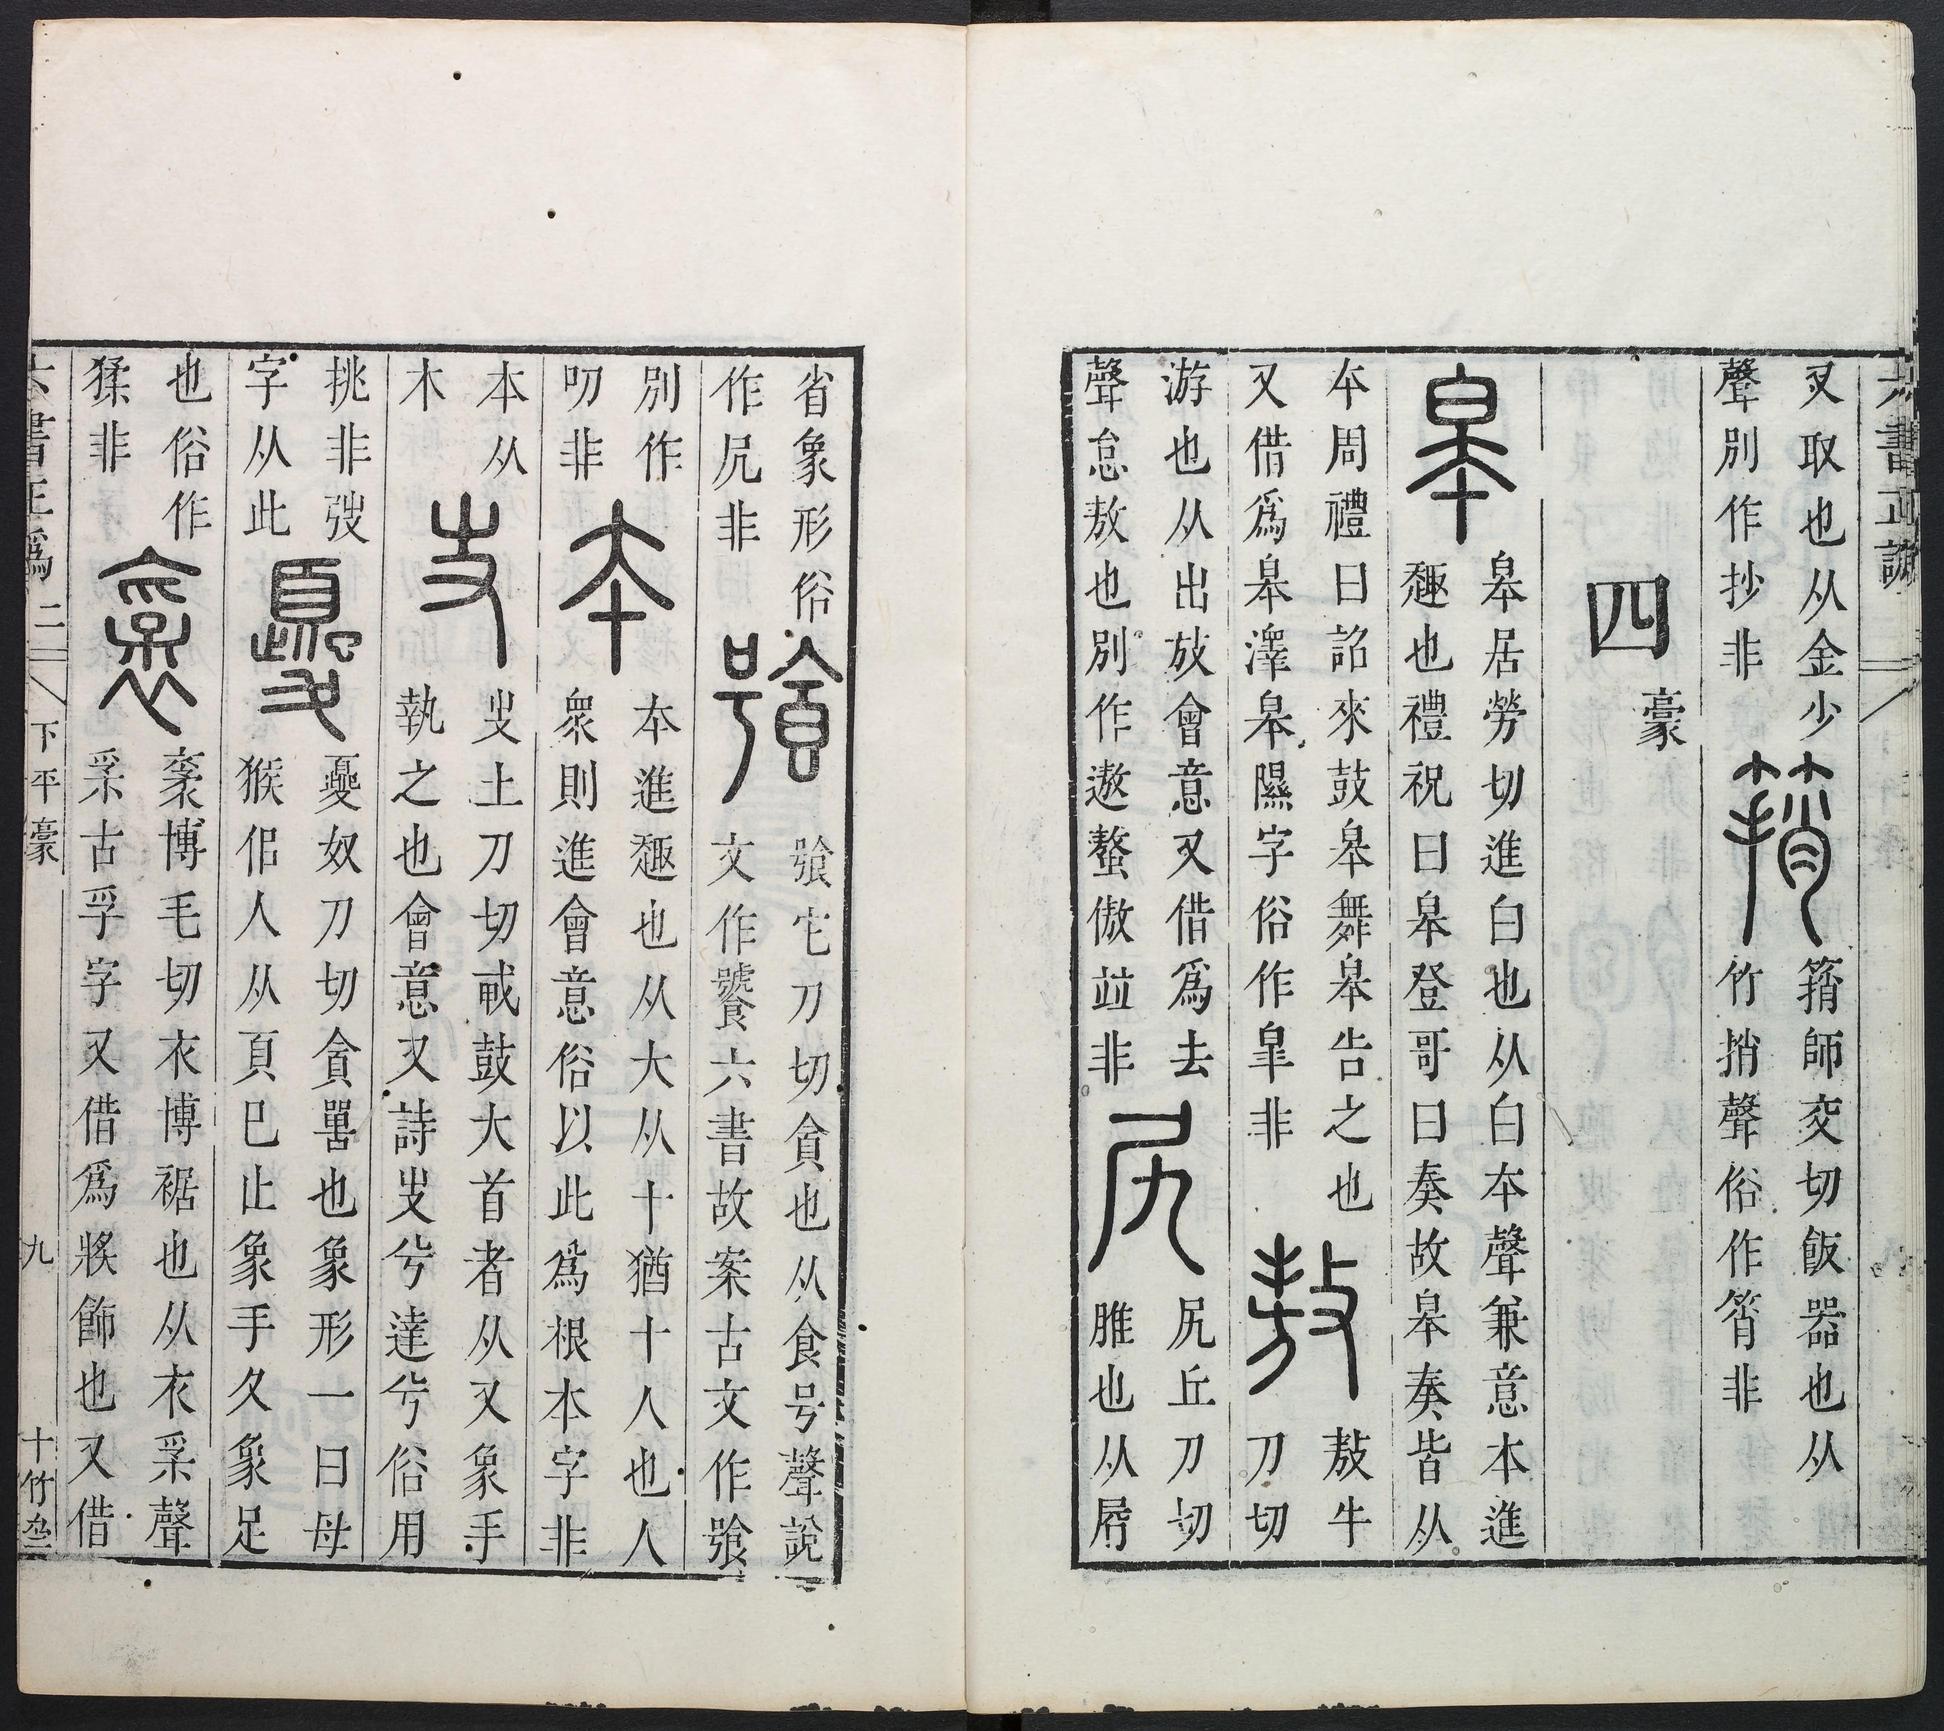 六書正譌
叉取也从金少
聲別作抄非
䈰
䈰師交切飯器也从
竹捎聲俗作筲非
四
豪
皋
皋居勞切進白也从白夲聲兼意夲進
趣也禮祝曰皋登哥曰奏故皋奏皆从
夲周禮曰詔來鼓皋舞皋告之也
又借爲皋澤皋隰字俗作臯非
敖
敖牛
刀切
游也从出放會意又借爲去
聲怠敖也別作遨螯傲竝非
尻
尻丘刀切
脽也从㞒
省象形俗
作尻非
飸
飸它刀切貪也从食号聲說
文作饕六書故案古文作飸
別作
叨非
夲
夲進趣也从大从十猶十人也人
衆則進會意俗以此爲根本字非
本从
木
𠬢
𠬢土刀切戒鼓大首者从又象手
執之也會意又詩𠬢兮達兮俗用
挑非弢
字从此
夒
夒奴刀切貪嘼也象形一曰母
猴佀人从頁巳止象手夂象足
也俗作
猱非
褎
褎博毛切衣博裾也从衣𤓽聲
𤓽古孚字又借爲獎飾也又借
六書正譌
二
下平豪
九
十竹